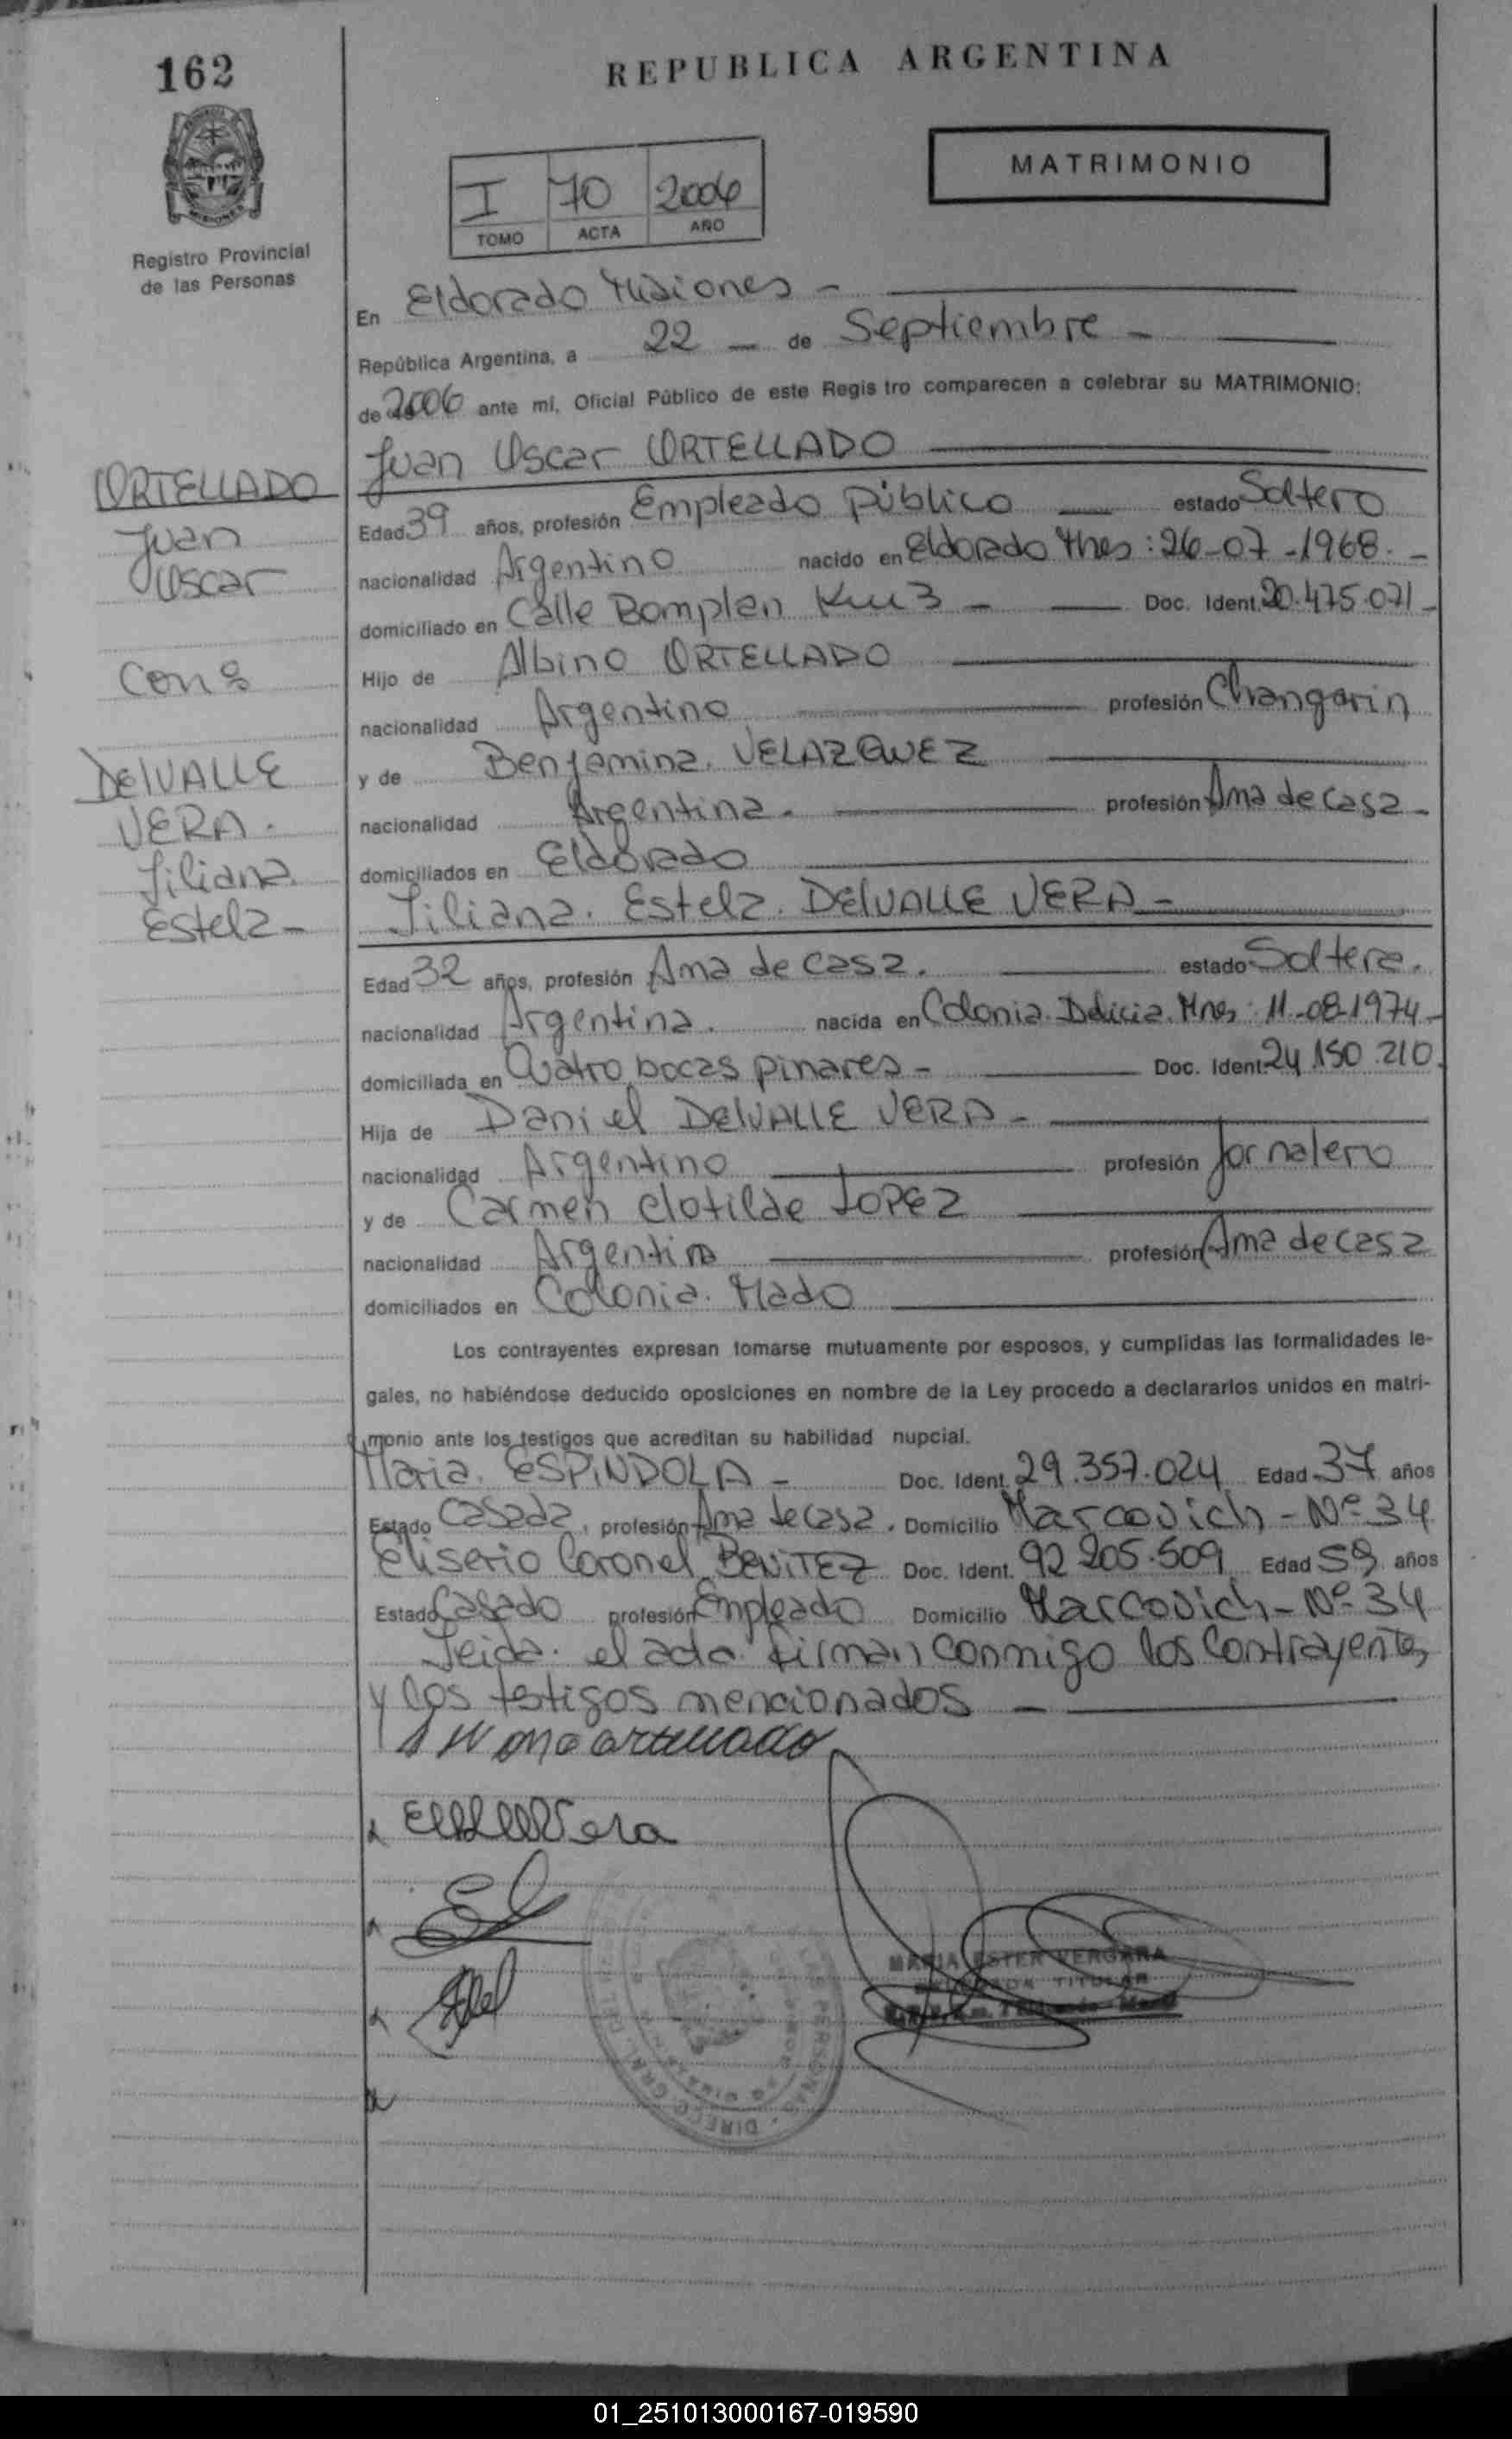 162
REPUBLICA ARGENTINA
MATRIMONIO
I 70 2006
TOMO ACTA AÑO
Registro Provincial
de las Personas
En Eldorado Misiones -
República Argentina, a 22 - de Septiembre -
de 2006 ante mí, Oficial Público de este Registro comparecen a celebrar su MATRIMONIO:
Juan Oscar ORTELLADO
ORTELLADO
Juan
Oscar
Con:
DelVALLE
VERA.
Liliana.
Estela-
Edad 39 años, profesión Empleado Público estado Soltero
nacionalidad Argentino nacido en Eldorado Mnes: 26-07-1968. -
domiciliado en Calle Bomplan Km 3 - Doc. Ident. 20.475.071-
Hijo de Albino ORTELLADO
nacionalidad Argentino profesión Changarin
y de Benjamina. VELAZQUEZ
nacionalidad Argentina. profesión Ama de casa -
domiciliados en Eldorado
Liliana. Estela. DelVALLE VERA -
Edad 32 años, profesión Ama de casa. estado Soltera.
nacionalidad Argentina. nacida en Colonia. Delicia. Mnes: 11-08-1974-
domiciliada en Cuatro bocas pinares - Doc. Ident. 24.150.210.
Hija de Daniel DelVALLE VERA -
nacionalidad Argentino profesión Jornalero
y de Carmen Clotilde LOPEZ
nacionalidad Argentina profesión Ama de casa
domiciliados en Colonia. Mado
Los contrayentes expresan tomarse mutuamente por esposos, y cumplidas las formalidades le-
gales, no habiéndose deducido oposiciones en nombre de la Ley procedo a declararlos unidos en matri-
monio ante los testigos que acreditan su habilidad nupcial.
Maria. ESPINDOLA - Doc. Ident. 29.357.024 Edad 37 años
Estado Casada, profesión Ama de casa. Domicilio Marcovich - Nº 34
Eliserio Coronel BENITEZ Doc. Ident. 92.205.509 Edad 59 años
Estado Casado profesión Empleado Domicilio Marcovich - Nº 34
Leida. el acta firman conmigo los Contrayentes
y los testigos mencionados -
MARIA ESTER VERGARA
TITULAR
01_251013000167-019590